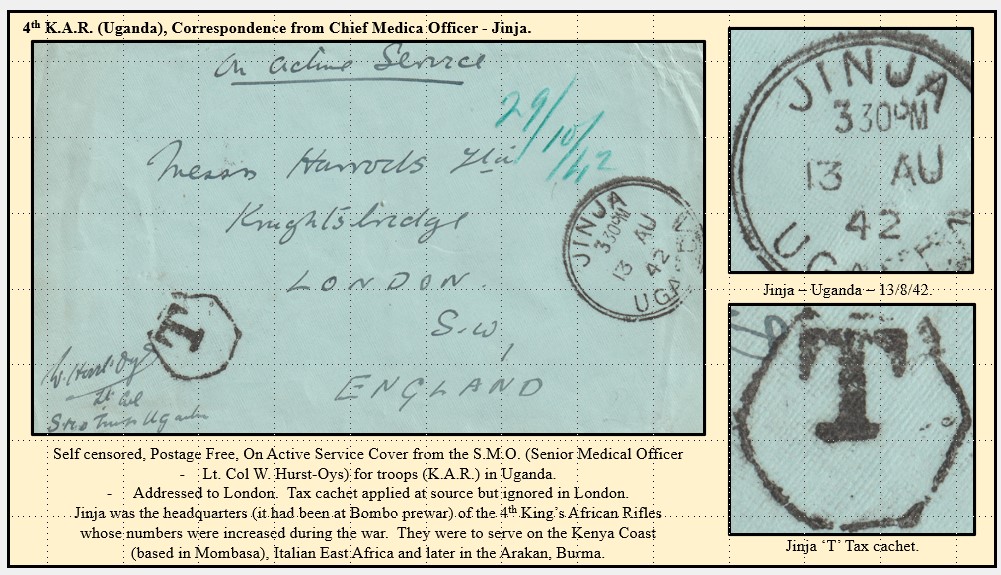 4th K.A.R. (Uganda), Correspondence from Chief Medica Officer - Jinja.
On Active Service
29/10/42
Messrs Harrods Ltd
Knightsbridge
LONDON.
S.W.
ENGLAND
JINJA
330PM
13 AU
42
UGA
T
W. Hurst-Oys
Lt Col
S.M.O Troops Uganda
JINJA
330PM
13 AU
42
Jinja – Uganda – 13/8/42.
T
Jinja ‘T’ Tax cachet.
Self censored, Postage Free, On Active Service Cover from the S.M.O. (Senior Medical Officer
- Lt. Col W. Hurst-Oys) for troops (K.A.R.) in Uganda.
- Addressed to London. Tax cachet applied at source but ignored in London.
Jinja was the headquarters (it had been at Bombo prewar) of the 4th King’s African Rifles
whose numbers were increased during the war. They were to serve on the Kenya Coast
(based in Mombasa), Italian East Africa and later in the Arakan, Burma.